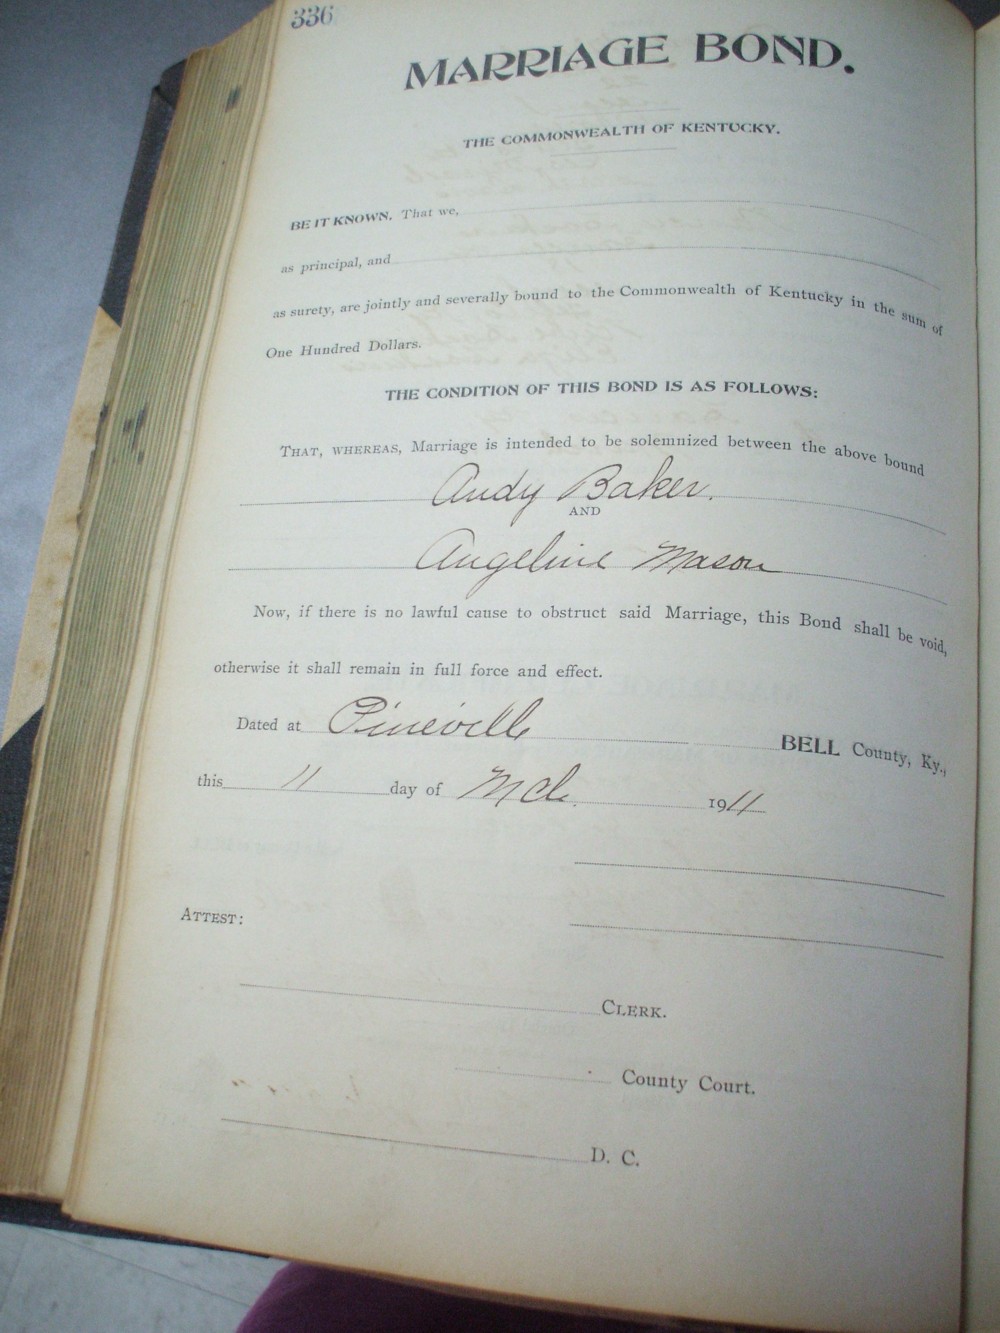 336
MARRIAGE BOND.
THE COMMONWEALTH OF KENTUCKY.
BE IT KNOWN, That we,
as principal, and
as surety, are jointly and severally bound to the Commonwealth of Kentucky in the sum of
One Hundred Dollars.
THE CONDITION OF THIS BOND IS AS FOLLOWS:
THAT, WHEREAS, Marriage is intended to be solemnized between the above bound
Andy Baker.
AND
Angeline Mason
Now, if there is no lawful cause to obstruct said Marriage, this Bond shall be void,
otherwise it shall remain in full force and effect.
Dated at Pineville BELL County, Ky.,
this 11 day of Mch. 1911
ATTEST:
CLERK.
County Court.
D. C.